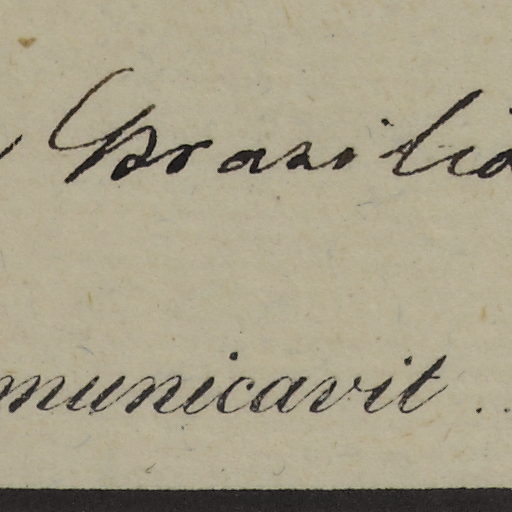 Brasilia
municavit . .